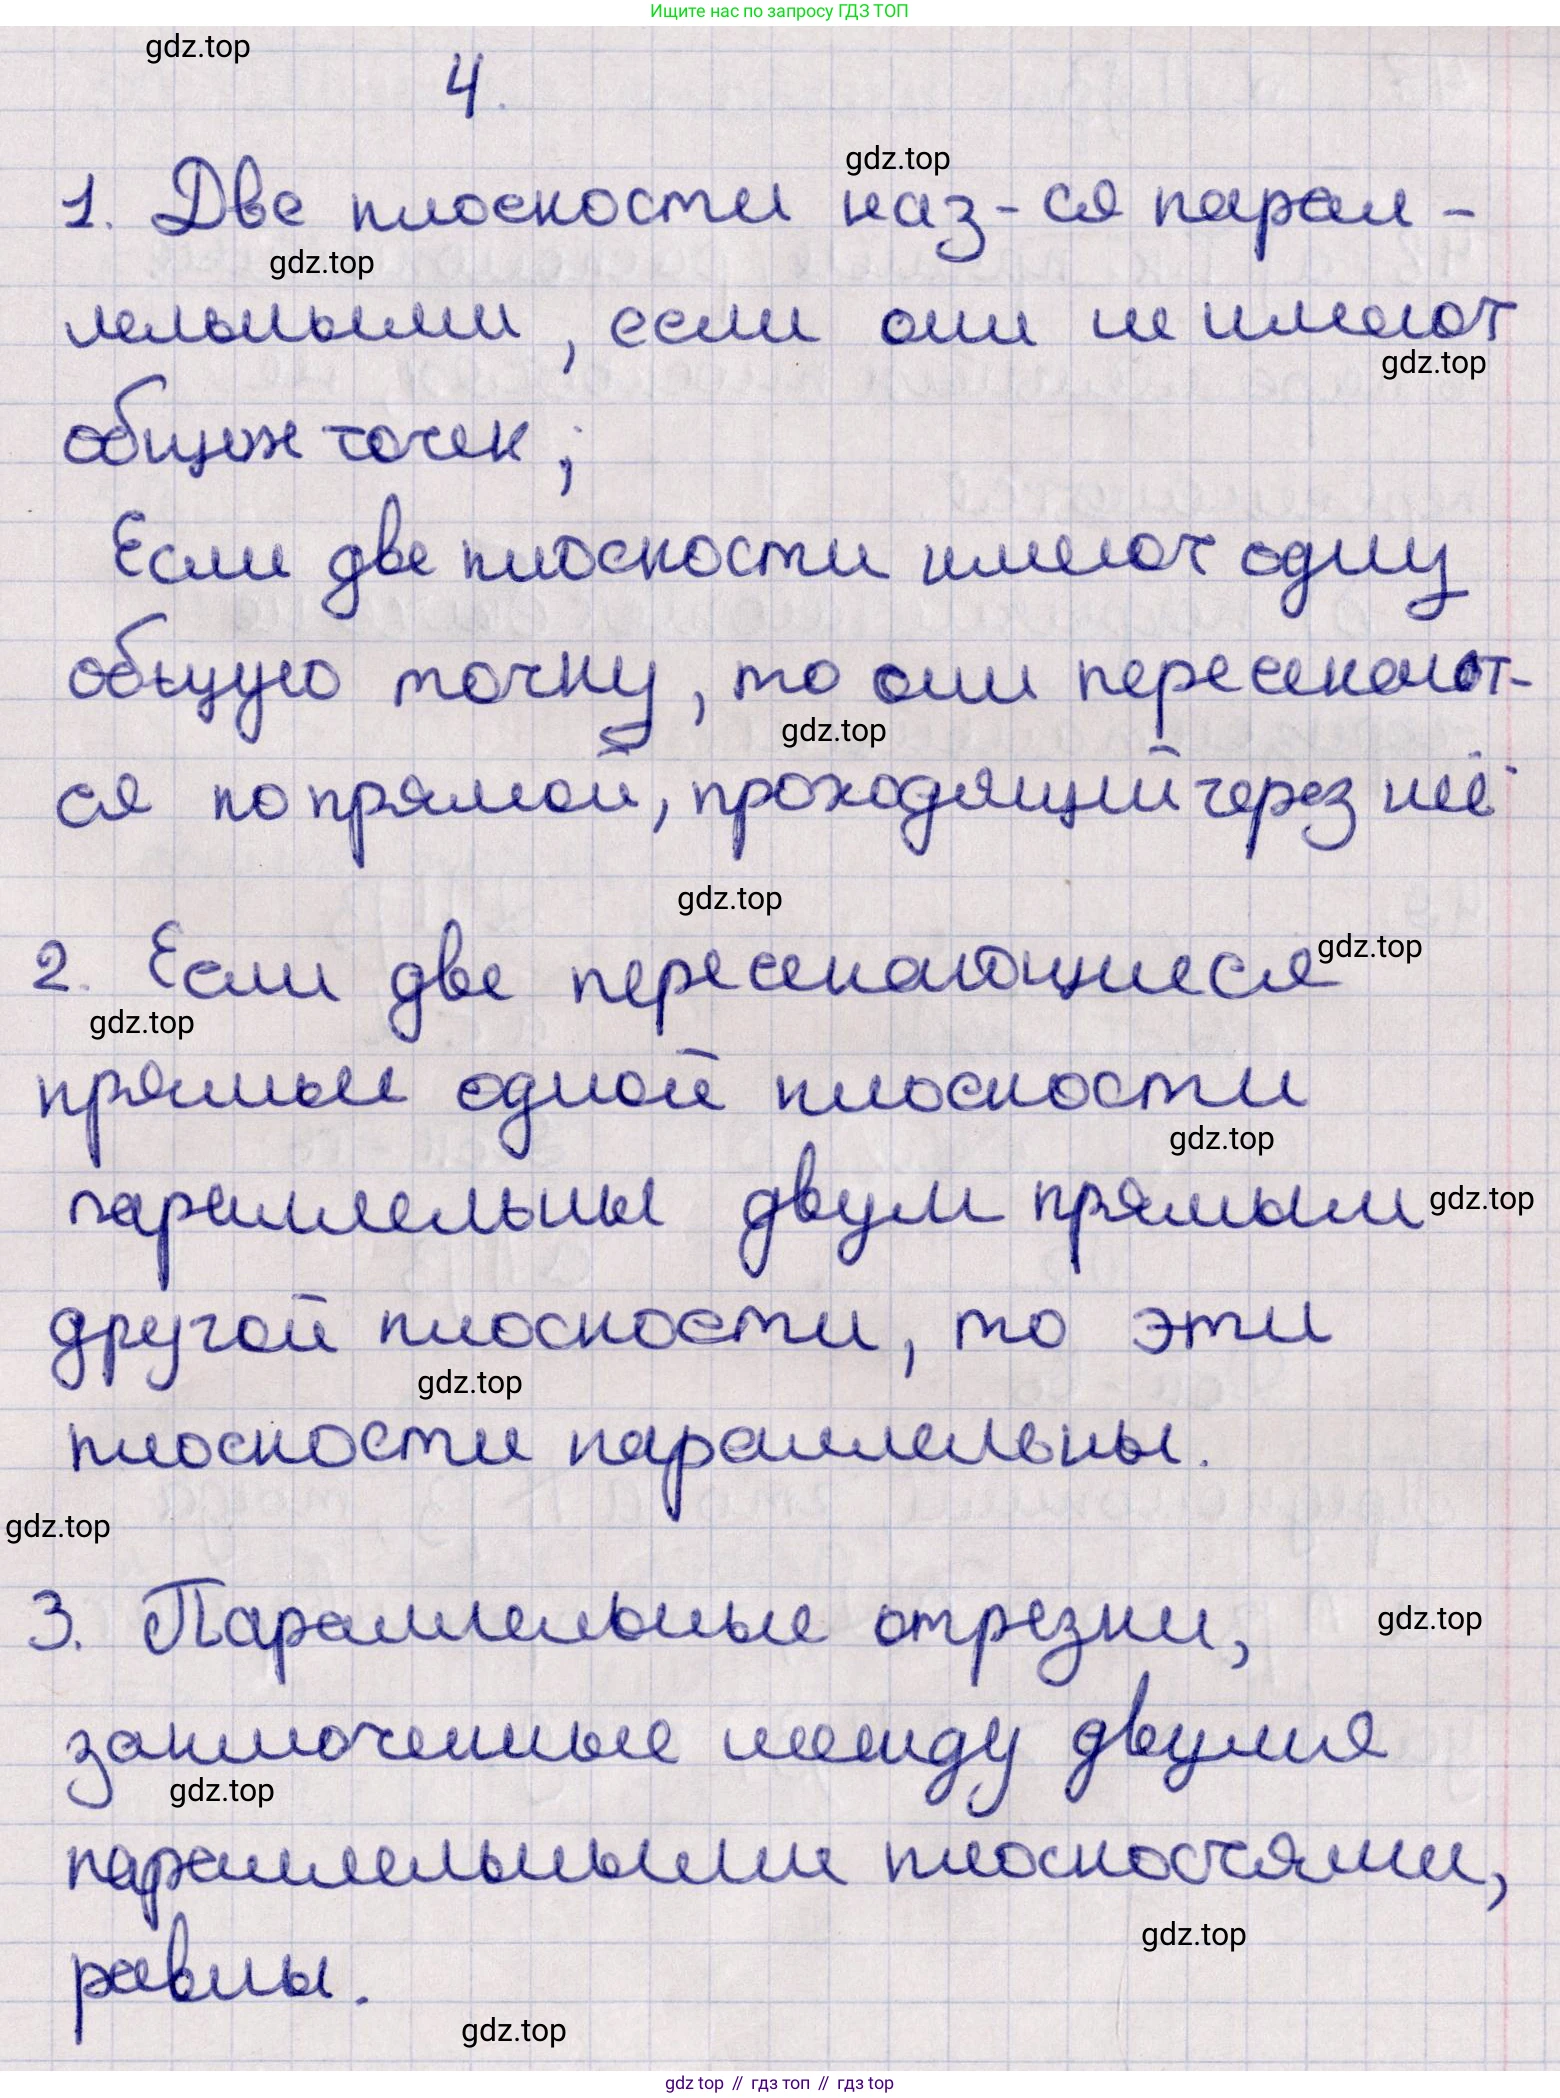 Ищите нас по запросу ГДЗ ТОП
gdz.top
4.
gdz.top
1. Две плоскости наз-ся парал-
gdz.top
лельными, если они не имеют
gdz.top
общих точек;
Если две плоскости имеют одну
общую точку, то они пересекают-
gdz.top
ся по прямой, проходящий через неё
gdz.top
2. Если две пересекающиеся
gdz.top
gdz.top
прямые одной плоскости
gdz.top
параллельны двум прямым
gdz.top
другой плоскости, то эти
gdz.top
плоскости параллельны.
gdz.top
3. Параллельные отрезки,
gdz.top
заключенные между двумя
gdz.top
параллельными плоскостями,
gdz.top
равны.
gdz.top
gdz top // гдз топ // гдз top